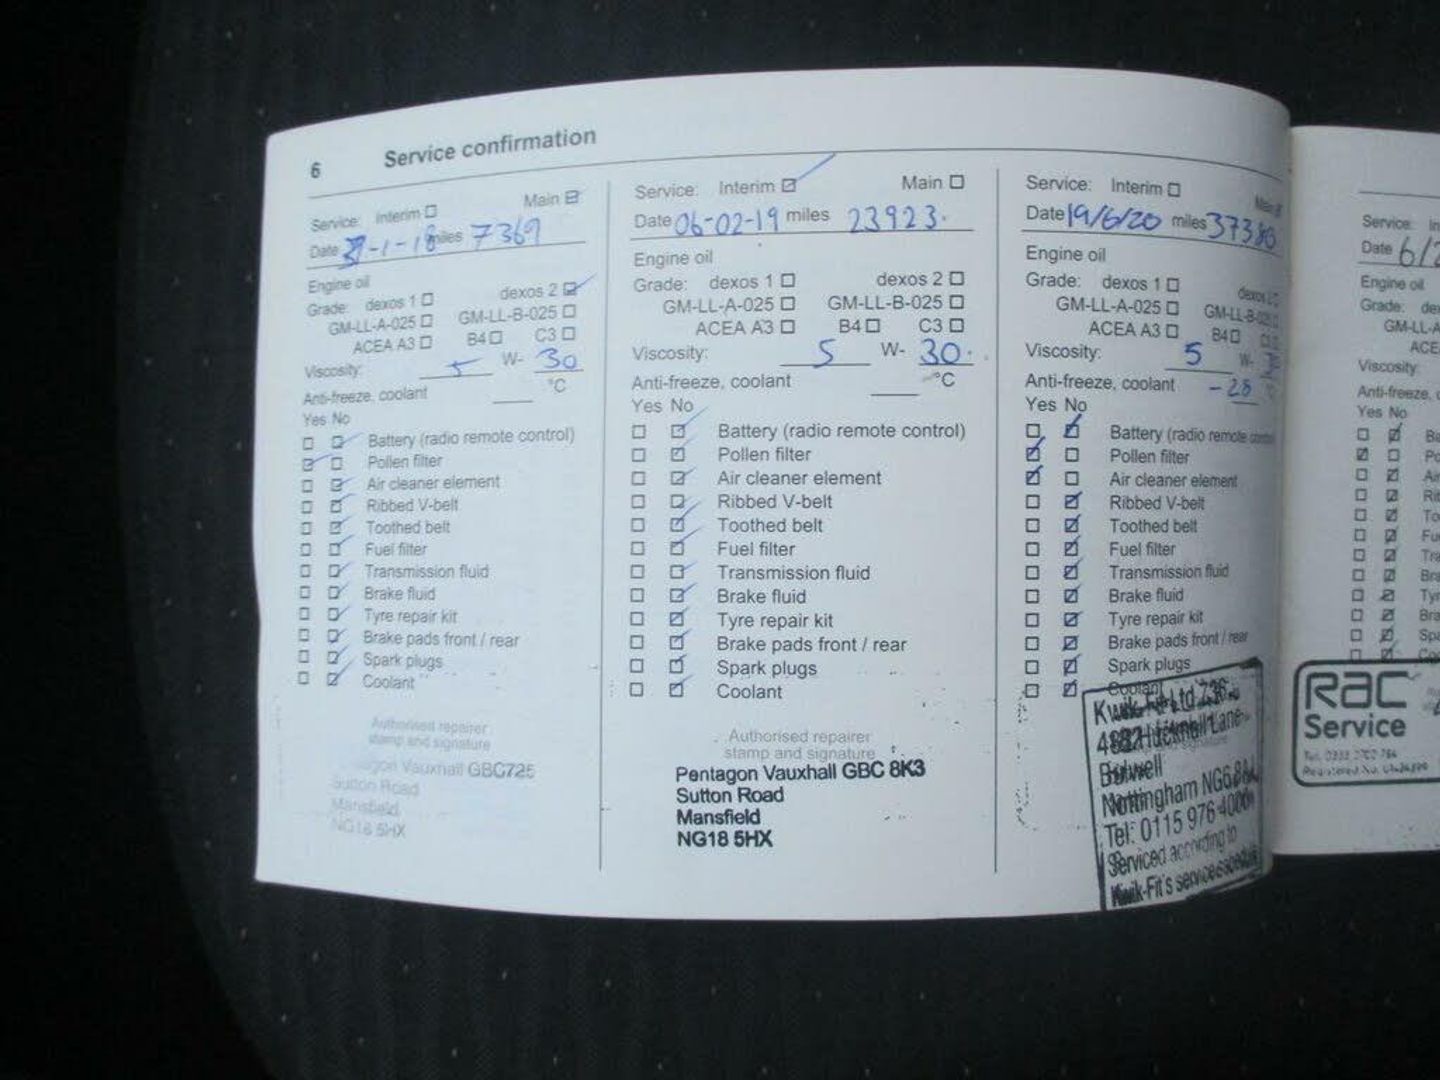 6 Service confirmation
Service: Interim Main
Date -1-18 miles 7369
Engine oil
Grade: dexos 1 dexos 2
GM-LL-A-025 GM-LL-B-025
ACEA A3 B4 C3
Viscosity: 5 W- 30
Anti-freeze, coolant °C
Yes No
Battery (radio remote control)
Pollen filter
Air cleaner element
Ribbed V-belt
Toothed belt
Fuel filter
Transmission fluid
Brake fluid
Tyre repair kit
Brake pads front / rear
Spark plugs
Coolant
Authorised repairer
stamp and signature
Vauxhall GBC725
Sutton Road
Mansfield
NG18 5HX
Service: Interim Main
Date 06-02-19 miles 23923.
Engine oil
Grade: dexos 1 dexos 2
GM-LL-A-025 GM-LL-B-025
ACEA A3 B4 C3
Viscosity: 5 W- 30.
Anti-freeze, coolant °C
Yes No
Battery (radio remote control)
Pollen filter
Air cleaner element
Ribbed V-belt
Toothed belt
Fuel filter
Transmission fluid
Brake fluid
Tyre repair kit
Brake pads front / rear
Spark plugs
Coolant
Authorised repairer
stamp and signature
Pentagon Vauxhall GBC 8K3
Sutton Road
Mansfield
NG18 5HX
Service: Interim Main
Date 19/6/20 miles 37380
Engine oil
Grade: dexos 1 dexos 2
GM-LL-A-025 GM-LL-B-025
ACEA A3 B4 C3
Viscosity: 5 W-
Anti-freeze, coolant -28 °C
Yes No
Battery (radio remote
Pollen filter
Air cleaner element
Ribbed V-belt
Toothed belt
Fuel filter
Transmission fluid
Brake fluid
Tyre repair kit
Brake pads front / rear
Spark plugs
Coolant
Kwik-Fit Ltd
Hucknall Lane
Bulwell
Nottingham NG6
Tel: 0115 976
Serviced according to
Kwik-Fit's service schedule
Service:
Date 6/
Engine oil
Grade:
GM-LL-A
ACE
Viscosity:
Anti-freeze,
Yes No
RAC
Service